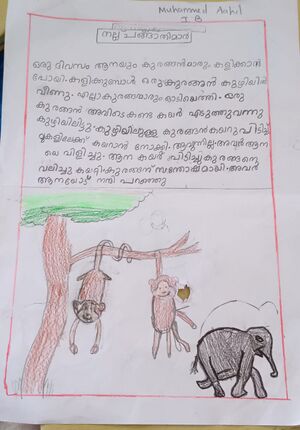 Muhammed Aahil
I. B
നല്ല ചങ്ങാതിമാർ
ഒരു ദിവസം ആനയും കുരങ്ങൻമാരും കളിക്കാൻ
പോയി. കളിക്കുമ്പോൾ ഒരു കുരങ്ങൻ കുഴിയിൽ
വീണു. എല്ലാകുരങ്ങന്മാരും ഓടിയെത്തി. ഒരു
കുരങ്ങൻ അവിടെകണ്ട കയർ എടുത്തുവന്നു
കുഴിയിലിട്ടു. കുഴിയിലുള്ള കുരങ്ങൻ കയറുപിടിച്ച്
മുകളിലേക്ക് കയറാൻ നോക്കി. ആവുന്നില്ല. അവർ ആന
യെ വിളിച്ചു. ആന കയർ പിടിച്ചു കുരങ്ങനെ
വലിച്ചു കയറ്റി. കുരങ്ങന് സന്തോഷമായി. അവർ
ആനയോട് നന്ദി പറഞ്ഞു